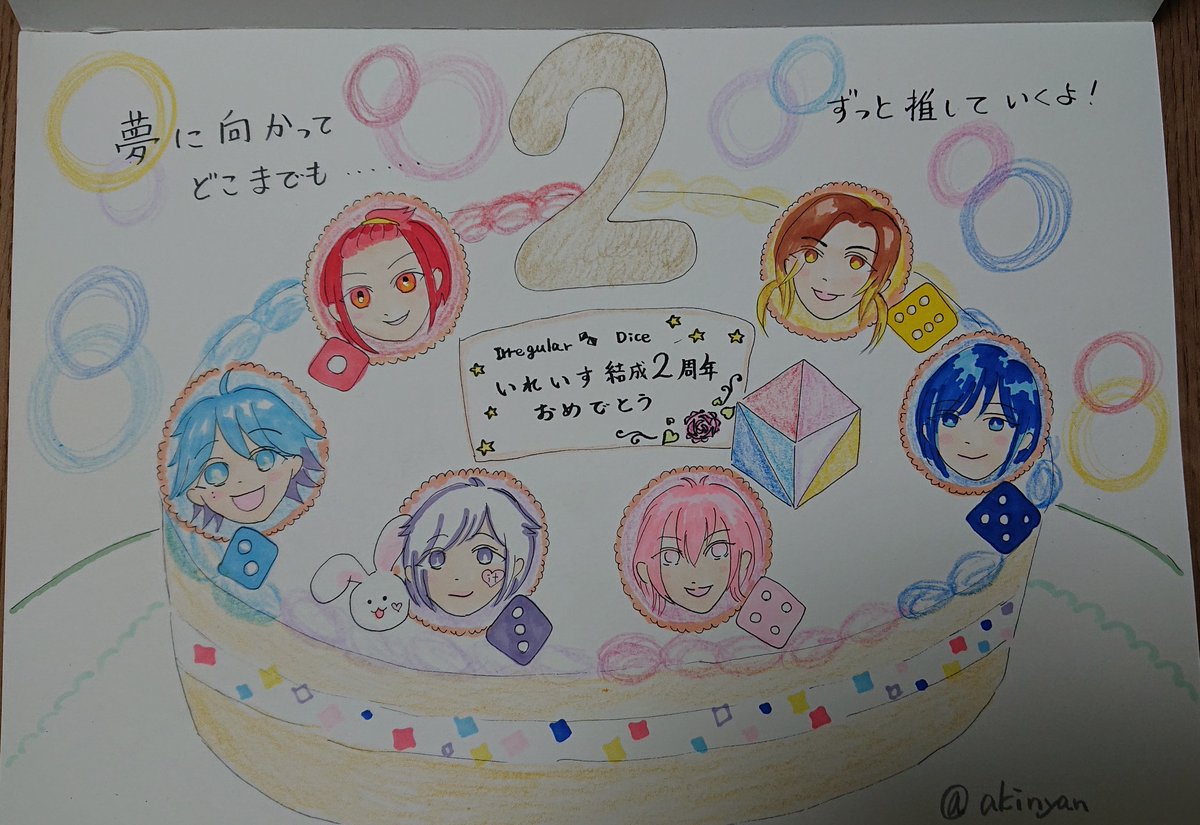 夢に向かって
どこまでも……
ずっと推していくよ!
2
Irregular Dice
いれいす結成2周年
おめでとう
@akinyan